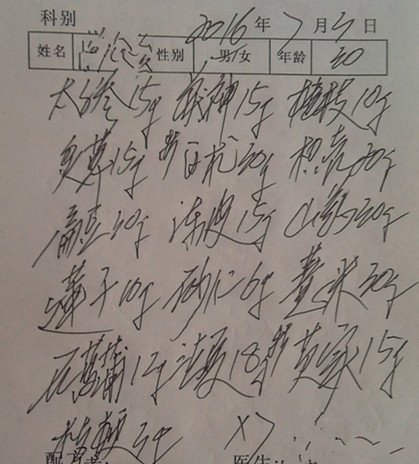 科别 2016年7月5日
姓名 性别 男/女 年龄 30
太子参15g 茯神15g 桂枝10g
15g 炒白术30g 枳壳30g
扁豆30g 陈皮15g 山药30g
莲子10g 砂仁6g 薏米30g
石菖蒲12g 法夏18g 黄芩15g
桔梗 X7
医生